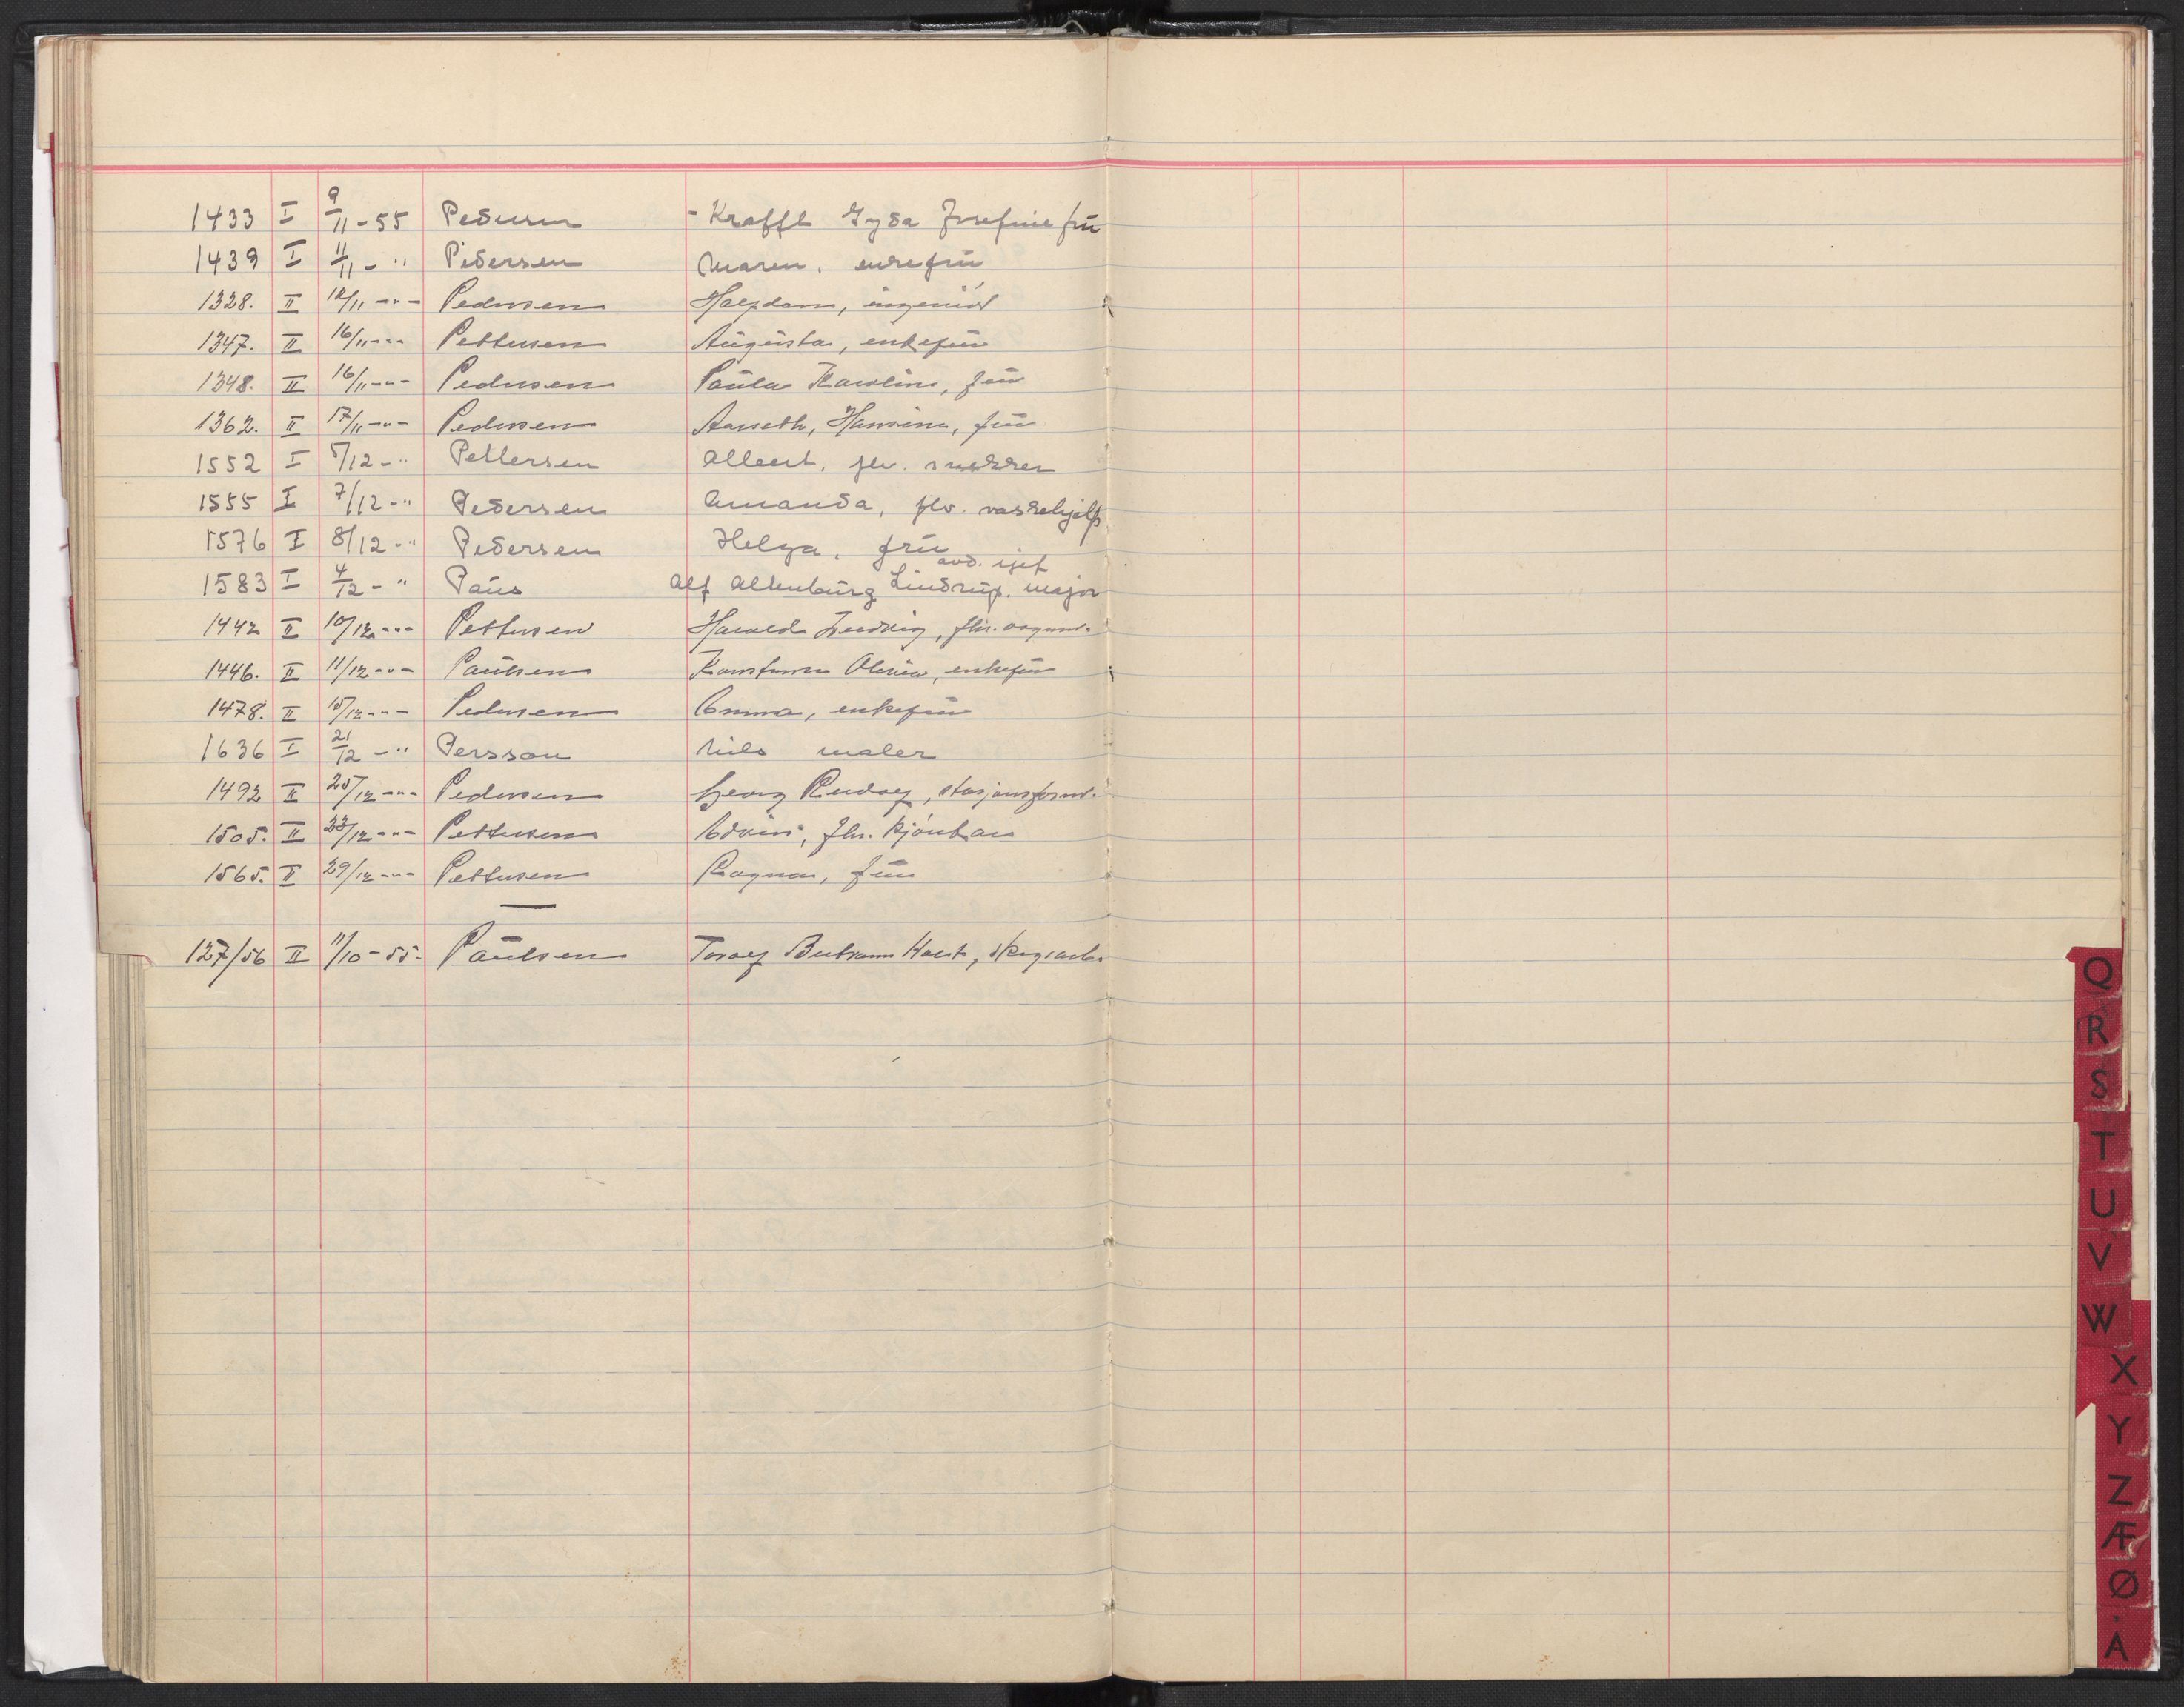 1433 I 9/11-55 Pedersen - Krafft Gyda Josefine frü
1439 I 11/11-" Pedersen Maren, enkefrü
1328. II 12/11 -"- Pedersen Halfdan, ingeniør
1347. II 16/11 -"- Pettersen Augusta, enkefrü
1348. II 16/11 -"- Pedersen Paula Karoline, frü
1362. II 17/11 -"- Pedersen Aaseth, Hansine, frü
1552 I 5/12-" Pettersen Albert, flv. snekker
1555 I 7/12-" Pedersen Amanda, flv. vaskehjelp
1576 I 8/12-" Pedersen Helga, frü
1583 I 4/12-" Paus Alf Altenburg Lindrup, major avd. sjef
1442 II 10/12 -"- Pettersen Harald Ludvig, flv.
1446. II 11/12 -"- Paulsen Olivia, enkefrü
1478. II 15/12 -"- Pedersen Emma, enkefrü
1636 I 21/12-" Persson Nils maler
1492 II 20/12 -"- Pedersen Georg Rudolf, stasjonsformd.
1505. II 23/12 -"- Pettersen Edvin, flv. kjørekar
1565. II 29/12 -"- Pettersen Ragna, frü
127/56 II 11/10-55- Paulsen Toralf Holst, skogsarb.
Q
R
S
T
U
V
W
X
Y
Z
Æ
Ø
Å